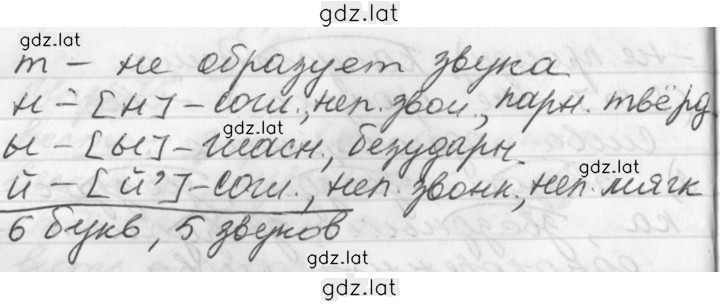 gdz.lat
gdz.lat
т – не образует звука
н – [н] – согл., неп. звон., парн. твёрд.
gdz.lat
ы – [ы] – гласн., безударн.
gdz.lat
й – [й'] – согл., неп. звонк., неп. мягк
6 букв, 5 звуков
gdz.lat
gdz.lat